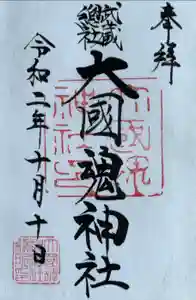 奉拝
武蔵
總社
大國魂神社
令和二年十月十日